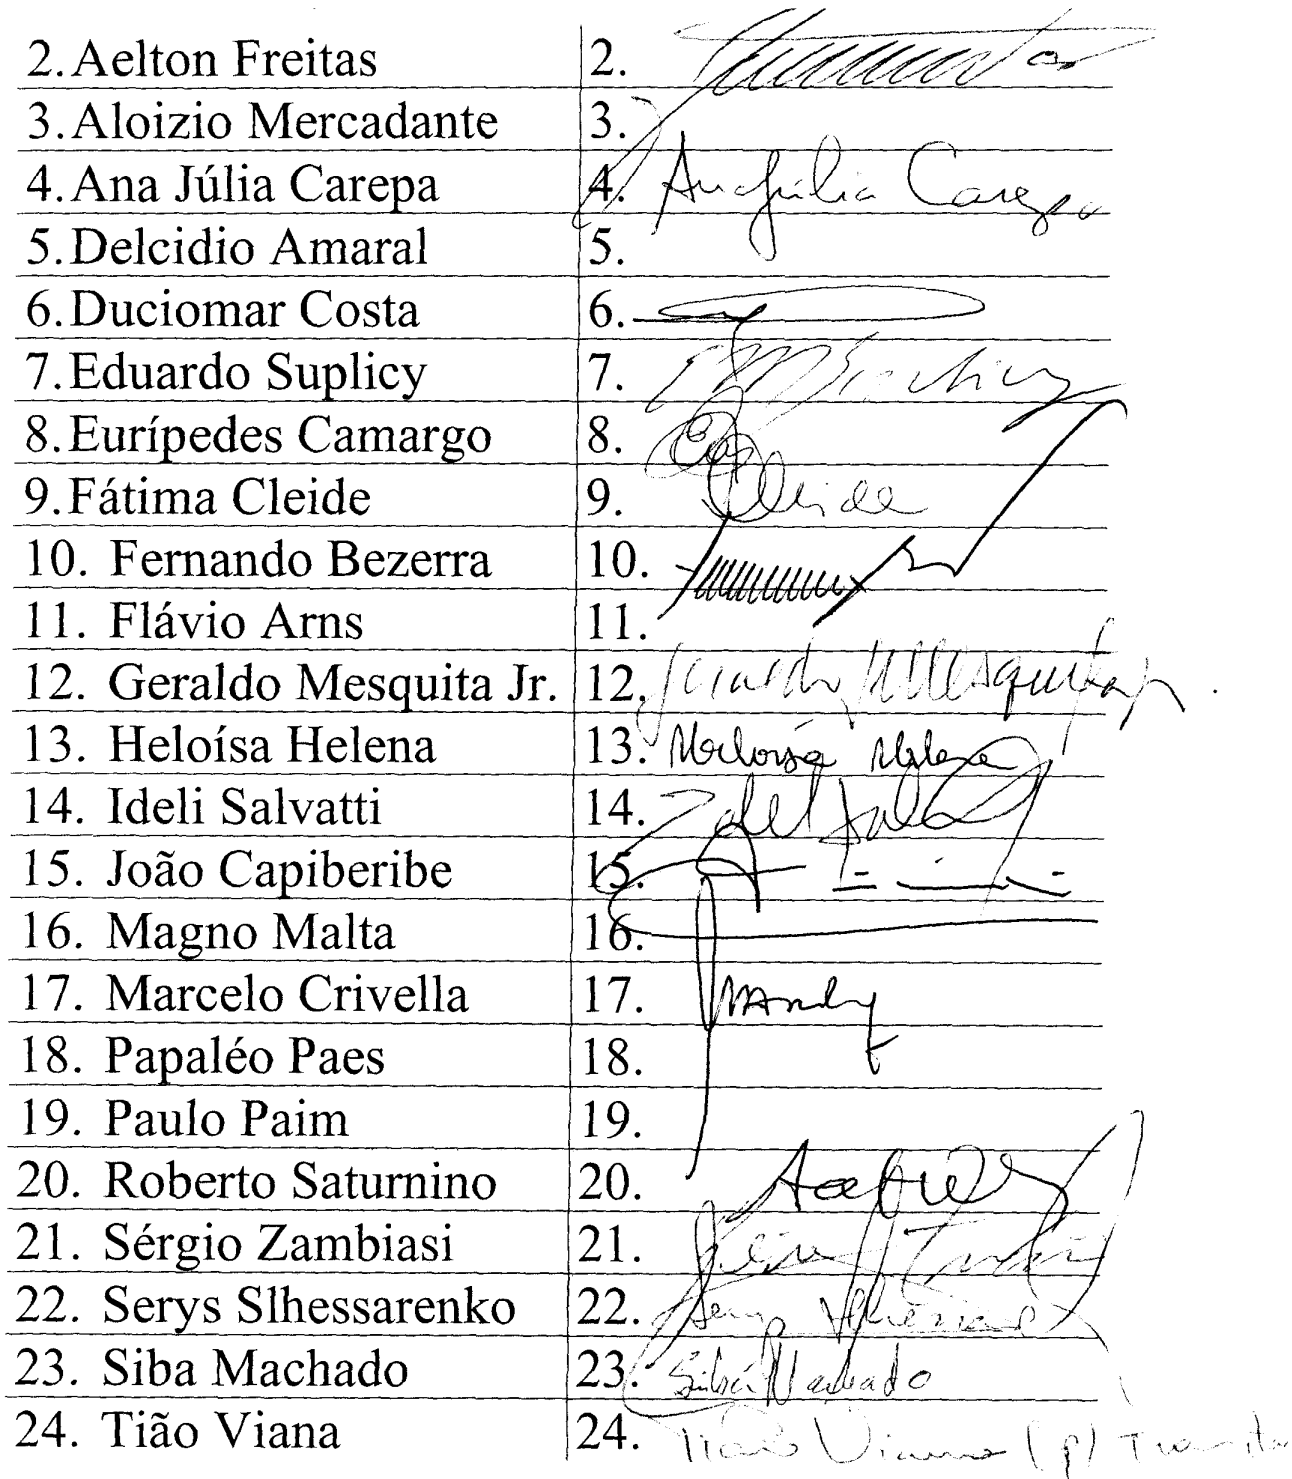 2. Aelton Freitas 2.
3. Aloizio Mercadante 3.
4. Ana Júlia Carepa 4. Ana Júlia Carepa
5. Delcidio Amaral 5.
6. Duciomar Costa 6.
7. Eduardo Suplicy 7.
8. Eurípedes Camargo 8.
9. Fátima Cleide 9. Cleide
10. Fernando Bezerra 10.
11. Flávio Arns 11.
12. Geraldo Mesquita Jr. 12. Geraldo Mesquita Jr.
13. Heloísa Helena 13. Heloísa Helena
14. Ideli Salvatti 14.
15. João Capiberibe 15.
16. Magno Malta 16.
17. Marcelo Crivella 17.
18. Papaléo Paes 18.
19. Paulo Paim 19.
20. Roberto Saturnino 20.
21. Sérgio Zambiasi 21.
22. Serys Slhessarenko 22. Serys
23. Siba Machado 23. Sibá Machado
24. Tião Viana 24. Tião Viana (p)